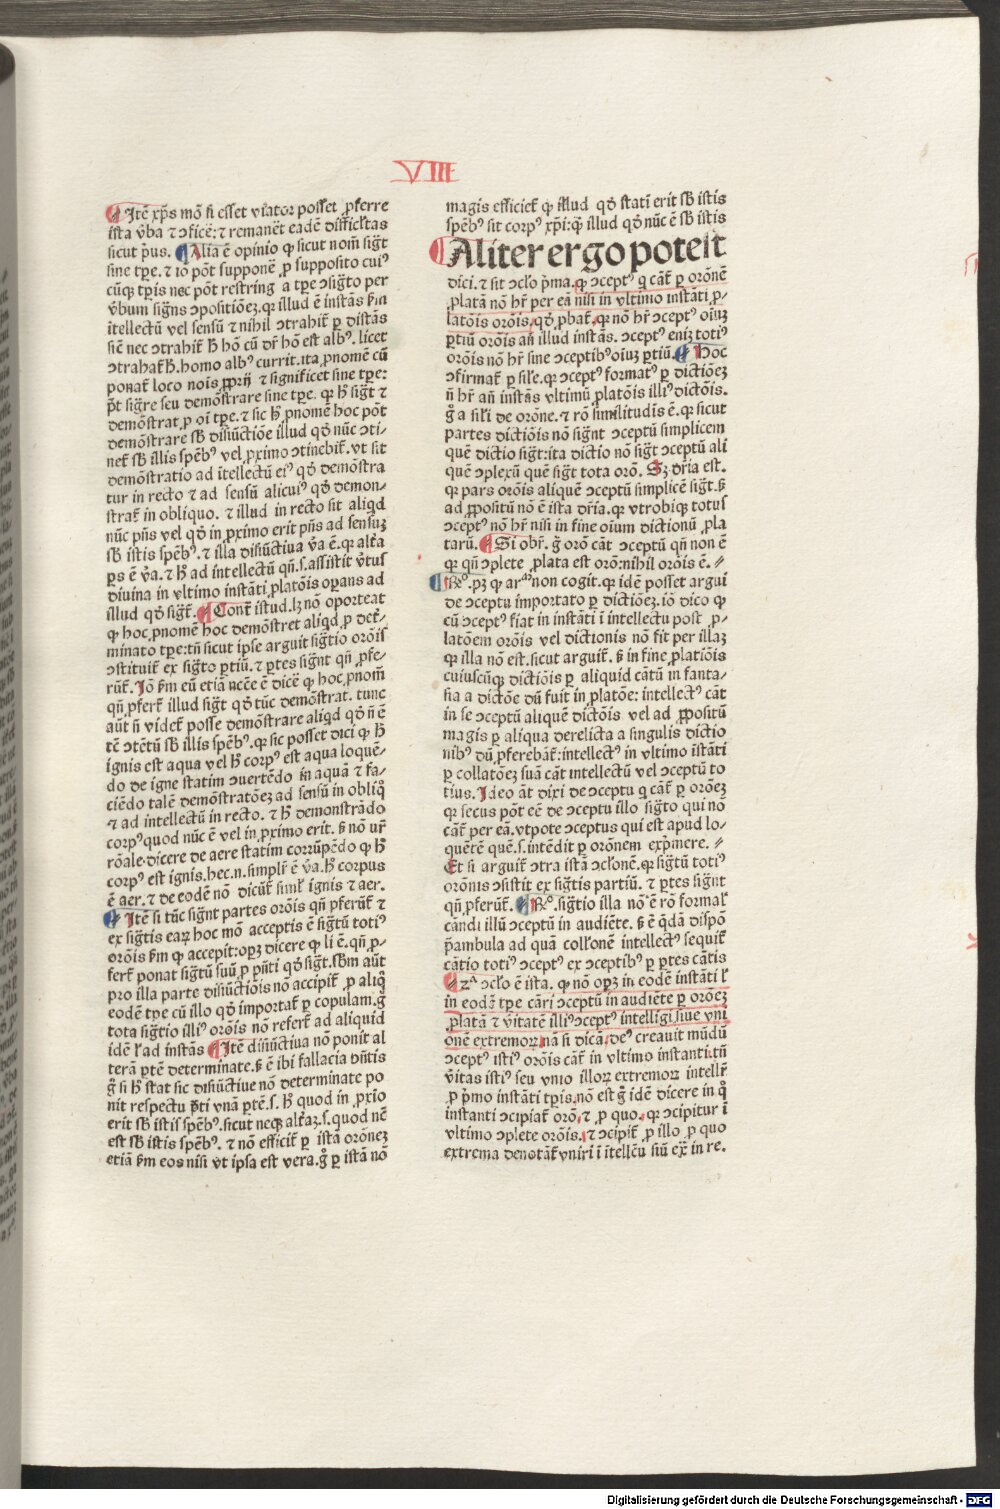 VIII
¶ Itē xp̄s mō si esset viator posset ꝓferre
ista v̄ba ⁊ ↄficeē: ⁊ remanēt eadē difficl̄tas
sicut pͥus. ¶ Alia ē opinio ꝙ sicut nom̄ sigt̄
sine tp̄e. ⁊ iō pōt supponē ꝓ supposito cuiꝰ
cūqꝫ tp̄is nec pōt restringi a tp̄e ↄsigto per
v̄bum signs ↄpositiōeꝫ.qꝛ illud ē instās sm̄
itellectū vel sensū ⁊ nihil ↄtrahit̄ ꝑ distās
siē nec ↄtrahit̄ h̄ hō cū dr̄ hō est albꝰ. licet
ↄtrahat̄ h̄.homo albꝰ currit.ita ꝓnomē cū
ponat̄ loco nois ꝓprij ⁊ significet sine tp̄e:
pōt sigre seu demōstrare sine tp̄e. qꝛ h̄ sigt̄ ⁊
demōstrat ꝓ oī tp̄e. ⁊ sic h̄ ꝓnomē hoc pōt
demōstrare sb̄ disiūctiōe illud qd̄ nūc ↄti-
net̄ sb̄ illis spēbꝰ vel ꝓximo ↄtinebit̄. vt sit
demōstratio ad itellectū eiꝰ qd̄ demōstra
tur in recto ⁊ ad sensū alicuiꝰ qd̄ demon-
strat̄ in obliquo. ⁊ illud in recto sit aliqd
nūc pn̄s vel qd̄ in ꝓximo erit pn̄s ad sensuꝫ
sb̄ istis spēbꝰ. ⁊ illa disiūctiua v̄a ē.qꝛ alt̄a
ꝑs ē v̄a. ⁊ h̄ ad intellectū qn̄.s.assistit v̄tus
diuina in vltimo instāti ꝓlatōis oꝑans ad
illud qd̄ sigt̄. ¶ Cont̄ istud.lꝫ nō oporteat
ꝙ hoc ꝓnomē hoc demōstret aliqd ꝓ det̄-
minato tp̄e:tn̄ sicut ipse arguit sigtio orōis
ↄstituit̄ ex sigto ꝑtiū. ⁊ ꝑtes signt̄ qn̄ ꝓfe-
rūt̄. Iō sm̄ eū etiā necē ē dicē ꝙ hoc ꝓnom̄
qn̄ ꝓfert̄ illud sigt̄ qd̄ tūc demōstrat. tunc
aūt n̄ videt̄ posse demōstrare aliqd qd̄ n̄ ē
tē ↄtētū sb̄ illis spēbꝰ.qꝛ sic posset dici ꝙ h̄
ignis est aqua vel h̄ corpꝰ est aqua loquē-
do de igne statim ↄuertēdo in aquā ⁊ fa-
ciēdo talē demōstratōeꝫ ad sensū in obliqͦ
⁊ ad intellectū in recto. ⁊ h̄ demonstrādo
corpꝰ quod nūc ē vel in ꝓximo erit. ꝫ nō vr̄
rōale.dicere de aere statim corrūpēdo ꝙ h̄
corpꝰ est ignis.hec.n.simplr̄ ē v̄a.h̄ corpus
ē aer. ⁊ de eodē nō dicūt̄ siml̄ ignis ⁊ aer.
¶ Itē si tūc signt̄ partes orōis qn̄ ꝓferūt̄ ⁊
ex sigtis eaꝝ hoc mō acceptis ē sigtū totiꝰ
orōis sm̄ ꝙ accepit:opꝫ dicere ꝙ li ē.qn̄ ꝓ-
fert̄ ponat sigtū suū ꝓ pn̄ti qd̄ sigt̄.sbm aūt
pro illa parte disiūctiōis nō accipit̄ ꝓ aliqͦ
eodē tp̄e cū illo qd̄ importat̄ ꝑ copulam.gͦ
tota sigtio illiꝰ orōis nō refert̄ ad aliquid
idē l̄ ad instās ¶ Itē disiūctiua nō ponit al
terā ꝑtē determinate.ꝫ ē ibi fallacia ↄn̄tis
gͦ si h̄ stat sic disiūctiue nō determinate po
nit respectu p̄ti vnā ꝑtē.s. h̄ quod in ꝓxīo
erit sb̄ istis spēbꝰ.sicut neqꝫ alt̄aꝫ.s.quod nē
est sb̄ istis spēbꝰ. ⁊ nō efficit̄ ꝑ istā orōneꝫ
etiā sm̄ eos nisi vt ipsa est vera.gͦ ꝑ istā nō
magis efficiet̄ ꝙ illud qd̄ statī erit sb̄ istis
spēbꝰ sit corpꝰ xp̄i:ꝙ illud qd̄ nūc ē sb̄ istis
¶ Aliter ergo potest
dici. ⁊ sit ↄclo pͥma.ꝙ ↄceptꝰ q̄ cāt̄ ꝑ orōnē
ꝓlatā nō hr̄ per eā nisi in vltimo instāti ꝓ-
latōis orōis.qd̄ ꝓbat̄.qꝛ nō hr̄ ↄceptꝰ oiuꝫ
ꝑtiū orōis an̄ illud instās. ↄceptꝰ eniꝫ totiꝰ
orōis nō hr̄ sine ↄceptibꝰ oiuꝫ ꝑtiū. ¶ Hoc
ↄfirmat̄ ꝑ sile.qꝛ ↄceptꝰ formatꝰ ꝑ dictiōeꝫ
n̄ hr̄ an̄ instās vltimū ꝓlatōis illiꝰ dictōis.
gͦ a sili de orōne. ⁊ rō similitudīs ē.qꝛ sicut
partes dictiōis nō signt̄ ↄceptū simplicem
quē dictio sigt̄:ita dictio nō sigt̄ ↄceptū ali
quē ↄplexū quē sigt̄ tota orō. Sꝫ dr̄ia est.
qꝛ pars orōis aliquē ↄceptū simplicē sigt̄.ꝫ
ad ꝓpositū nō ē ista dr̄ia.qꝛ vtrobiqꝫ totus
ↄceptꝰ nō hr̄ nisi in fine oium dictionū ꝓla
tarū. ¶ Si obr̄. gͦ orō cāt ↄceptū qn̄ non ē
qꝛ qn̄ ↄplete ꝓlata est orō:nihil orōis ē. 〃
¶ Rͦ. pꝫ ꝙ arᵐ non cogit.qꝛ idē posset argui
de ↄceptu importato ꝑ dictiōeꝫ.iō dico ꝙ
cū ↄceptꝰ fiat in instāti i intellectu post ꝓ-
latōem orōis vel dictionis nō fit per illaꝫ
qꝛ illa nō est.sicut arguit̄. ꝫ in fine ꝓlatiōis
cuiuscūqꝫ dictiōis ꝑ aliquid cātū in fanta-
sia a dictōe dū fuit in ꝓlatōe: intellectꝰ cāt
in se ↄceptū aliquē dictōis vel ad ꝓpositū
magis ꝑ aliqua derelicta a singulis dictio
nibꝰ dū ꝓferebāt̄:intellectꝰ in vltimo īstāti
ꝑ collatōeꝫ suā cāt intellectū vel ↄceptū to
tius. Ideo āt dixi de ↄceptu q̄ cāt̄ ꝑ orōeꝫ
qꝛ secus pōt eē de ↄceptu illo sigto qui nō
cāt̄ per eā.vtpote ↄceptus qui est apud lo-
quētē quē.s.intēdit ꝑ orōnem exp̄mere. 〃
Et si arguit̄ ↄtra istā ↄclonē.qꝛ sigtū totiꝰ
orōnis ↄsistit ex sigtis partiū. ⁊ ꝑtes signt̄
qn̄ ꝓferūt̄. ¶ Rͦ. sigtio illa nō ē rō formal̄
cāndi illū ↄceptū in audiēte. ꝫ ē qdā dispō
p̄ambula ad quā collonē intellectꝰ sequit̄
cātio totiꝰ ↄceptꝰ ex ↄceptibꝰ ꝑ ꝑtes cātis
¶ 2ᵃ ↄclo ē ista. ꝙ nō opꝫ in eodē instāti l̄
in eodꝫ tp̄e cāri ↄceptū in audiēte ꝑ orōeꝫ
ꝓlatā ⁊ v̄itatē illiꝰ ↄceptꝰ intelligi siue vni
onē extremoꝝ nā si dicā.deꝰ creauit mūdū
ↄceptꝰ istiꝰ orōis cāt̄ in vltimo instanti:tn̄
v̄itas istiꝰ seu vnio illoꝝ extremoꝝ intellr̄
ꝓ pͥmo instāti tp̄is.nō est gͦ idē dicere in qͦ
instanti ↄcipiat̄ orō. ⁊ ꝓ quo.qꝛ ↄcipitur i
vltimo ↄplete orōis. ⁊ ↄcipit̄ ꝓ illo ꝓ quo
extrema denotāt̄ vniri i itellcū siū ex̄ in re.
Digitalisierung gefördert durch die Deutsche Forschungsgemeinschaft - DFG